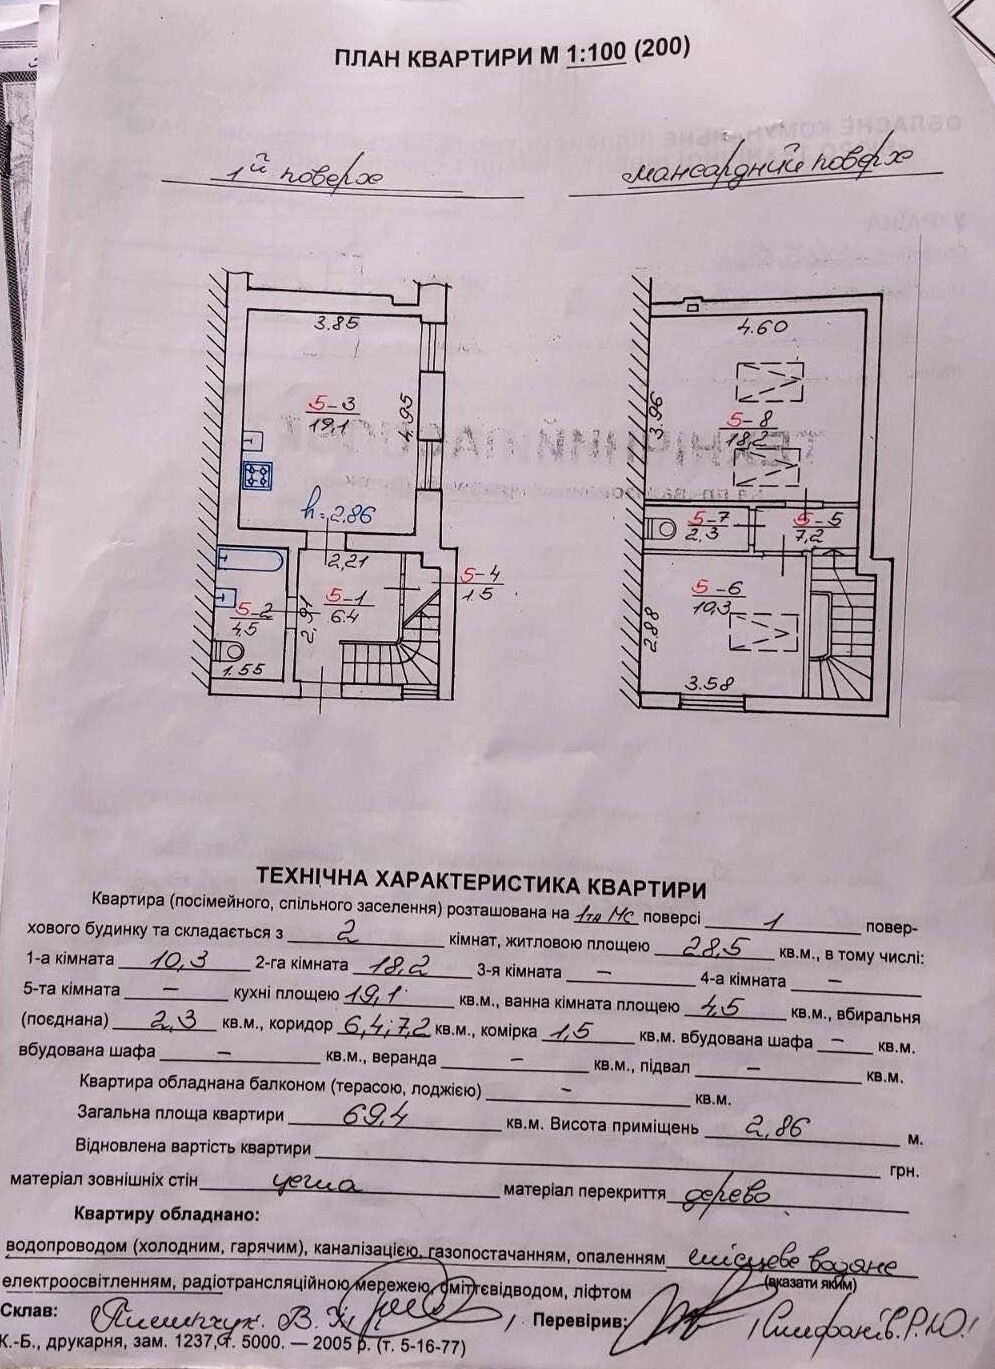 ПЛАН КВАРТИРИ М 1:100 (200)
1й поверх
мансардний поверх
3.85
5-3
19,1
4.95
h=2.86
2,21
5-4
1.5
5-1
6.4
2.91
5-2
4,5
1.55
4.60
3.96
5-8
18,2
5-7
2.3
5-5
7,2
5-6
10,3
2.88
3.58
ТЕХНІЧНА ХАРАКТЕРИСТИКА КВАРТИРИ
Квартира (посімейного, спільного заселення) розташована на 1та Мс поверсі 1 повер-
хового будинку та складається з 2 кімнат, житловою площею 28,5 кв.м., в тому числі:
1-а кімната 10,3 2-га кімната 18,2 3-я кімната — 4-а кімната —
5-та кімната — кухні площею 19,1 кв.м., ванна кімната площею 4,5 кв.м., вбиральня
(поєднана) 2,3 кв.м., коридор 6,4; 7,2 кв.м., комірка 1,5 кв.м. вбудована шафа — кв.м.
вбудована шафа — кв.м., веранда — кв.м., підвал — кв.м.
Квартира обладнана балконом (терасою, лоджією) — кв.м.
Загальна площа квартири 69,4 кв.м. Висота приміщень 2,86 м.
Відновлена вартість квартири грн.
матеріал зовнішніх стін цегла матеріал перекриття дерево
Квартиру обладнано:
водопроводом (холодним, гарячим), каналізацією, газопостачанням, опаленням місцеве водяне
(вказати яким)
електроосвітленням, радіотрансляційною мережею, сміттєвідводом, ліфтом
Склав: В. Перевірив: Р.Ю.
К.-Б., друкарня, зам. 1237, т. 5000. — 2005 р. (т. 5-16-77)